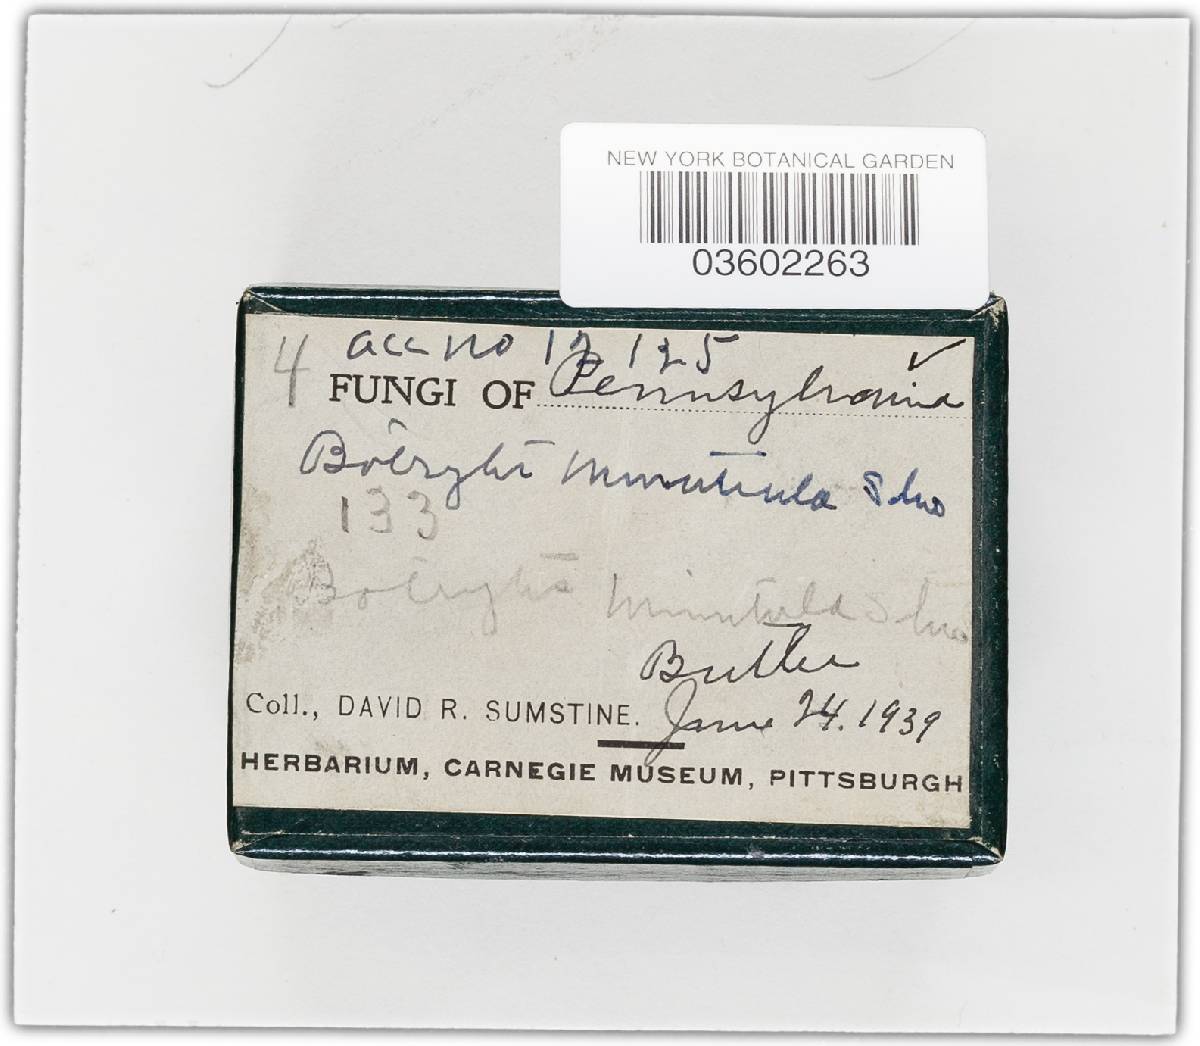 NEW YORK BOTANICAL GARDEN
03602263
4 acc no 12125 ✓
FUNGI OF Pennsylvania
Botrytis minutula
133
Botrytis minutula
Butler
June 24. 1939
Coll., DAVID R. SUMSTINE.
HERBARIUM, CARNEGIE MUSEUM, PITTSBURGH